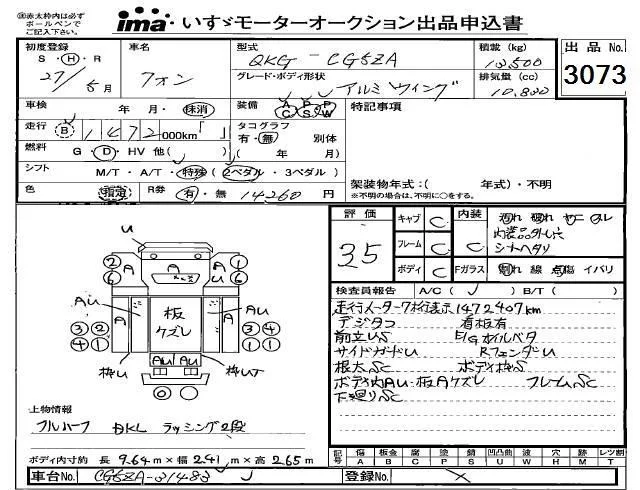 ㊟赤太枠内は必ず
ボールペンで
ご記入下さい。
ima いすゞモーターオークション出品申込書
初度登録
S・H・R
27/5月
車名
フォン
型式
QKG-CG5ZA
グレード・ボディ形状
アルミウィング
積載 (kg)
13,500
排気量 (cc)
10,830
出品 No.
3073
車検 年・月・抹消
装備 A P P C S W
特記事項
走行 B 1472 000km
タコグラフ
有・無 別体
( 年 月)
燃料 G・D・HV 他( )
シフト M/T・A/T・特殊 (2ペダル・3ペダル)
色 指定 R券 有・無 14260円
架装物年式:( 年式)・不明
※不明の場合は、不明に○をする。
評価
3.5
キャブ C
フレーム C
ボディ C
内装 C
内装品外し穴
シートヘタリ
Fガラス 割れ 線 点傷 イバリ
検査員報告 A/C( ) B/T( )
走行メーター7桁表示1472407km
デジタコ 看板有
前立US E/Gオイルベタ
サイドガードU RフェンダU
根太SC ボディ枠S
ボディ内AU・板Aケズレ フレームSC
下廻りSC
U
② A A ①
⑥ A U ⑥
AU AU
A 板 ケズレ A
③② ③④
④① ①①
枠U AU AU 枠UT
上物情報
フルハーフ BKL ラッシング2段
ボディ内寸約 長 9.64m×幅 2.41m×高 2.65m
記号 傷 板金 腐 塗 錆 凹凸曲 波 穴 跡 レンズ割
A B C P S U W H M T
車台No. CG5ZA-31483
登録No.